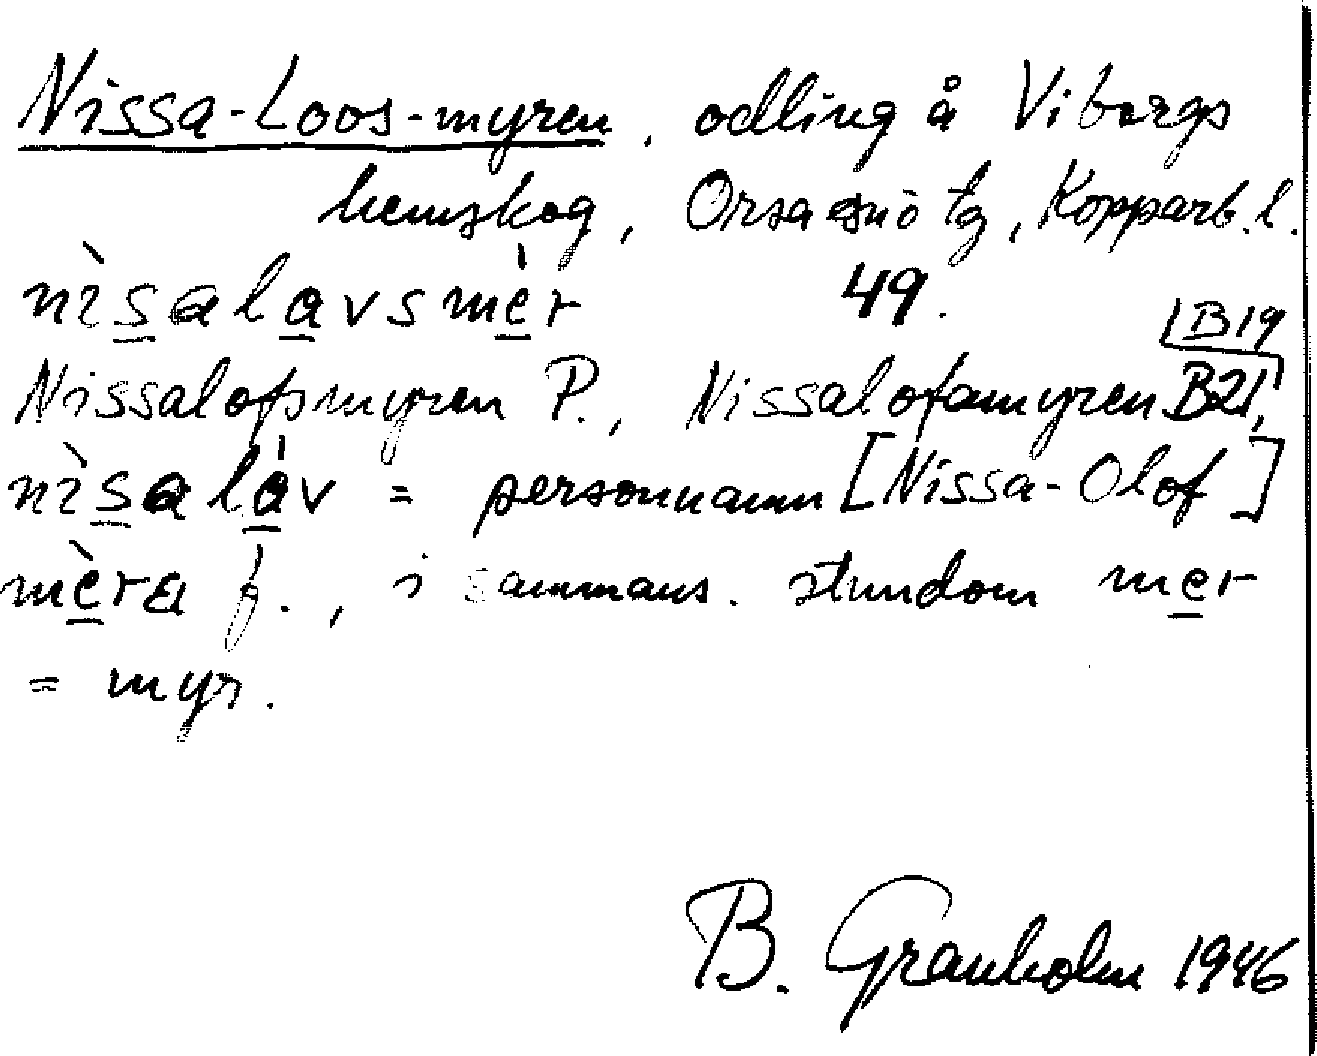 Nissa-Loos-myren, odling å Viborgs
hemskog, Orsa snö tg, Kopparb. l.
nìsalavsmèr 49.
B19
Nissalofsmyren P., Nissalofamyren B21,
nìsalàv = personnamn [Nissa-Olof]
mèra f., i sammans. stundom mer
= myr.
B. Granholm 1946